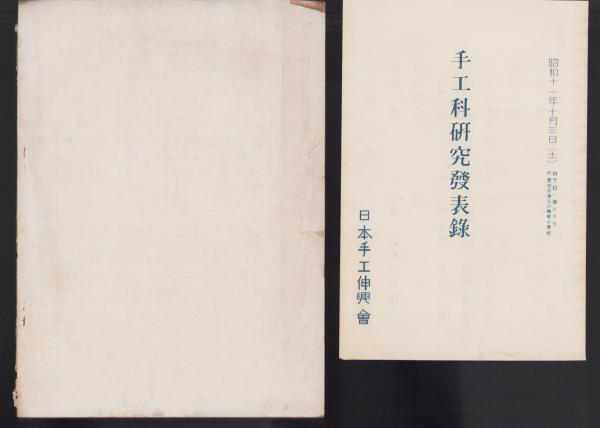 昭和十一年十月三日(土)
手工科研究發表錄
日本手工伸興會